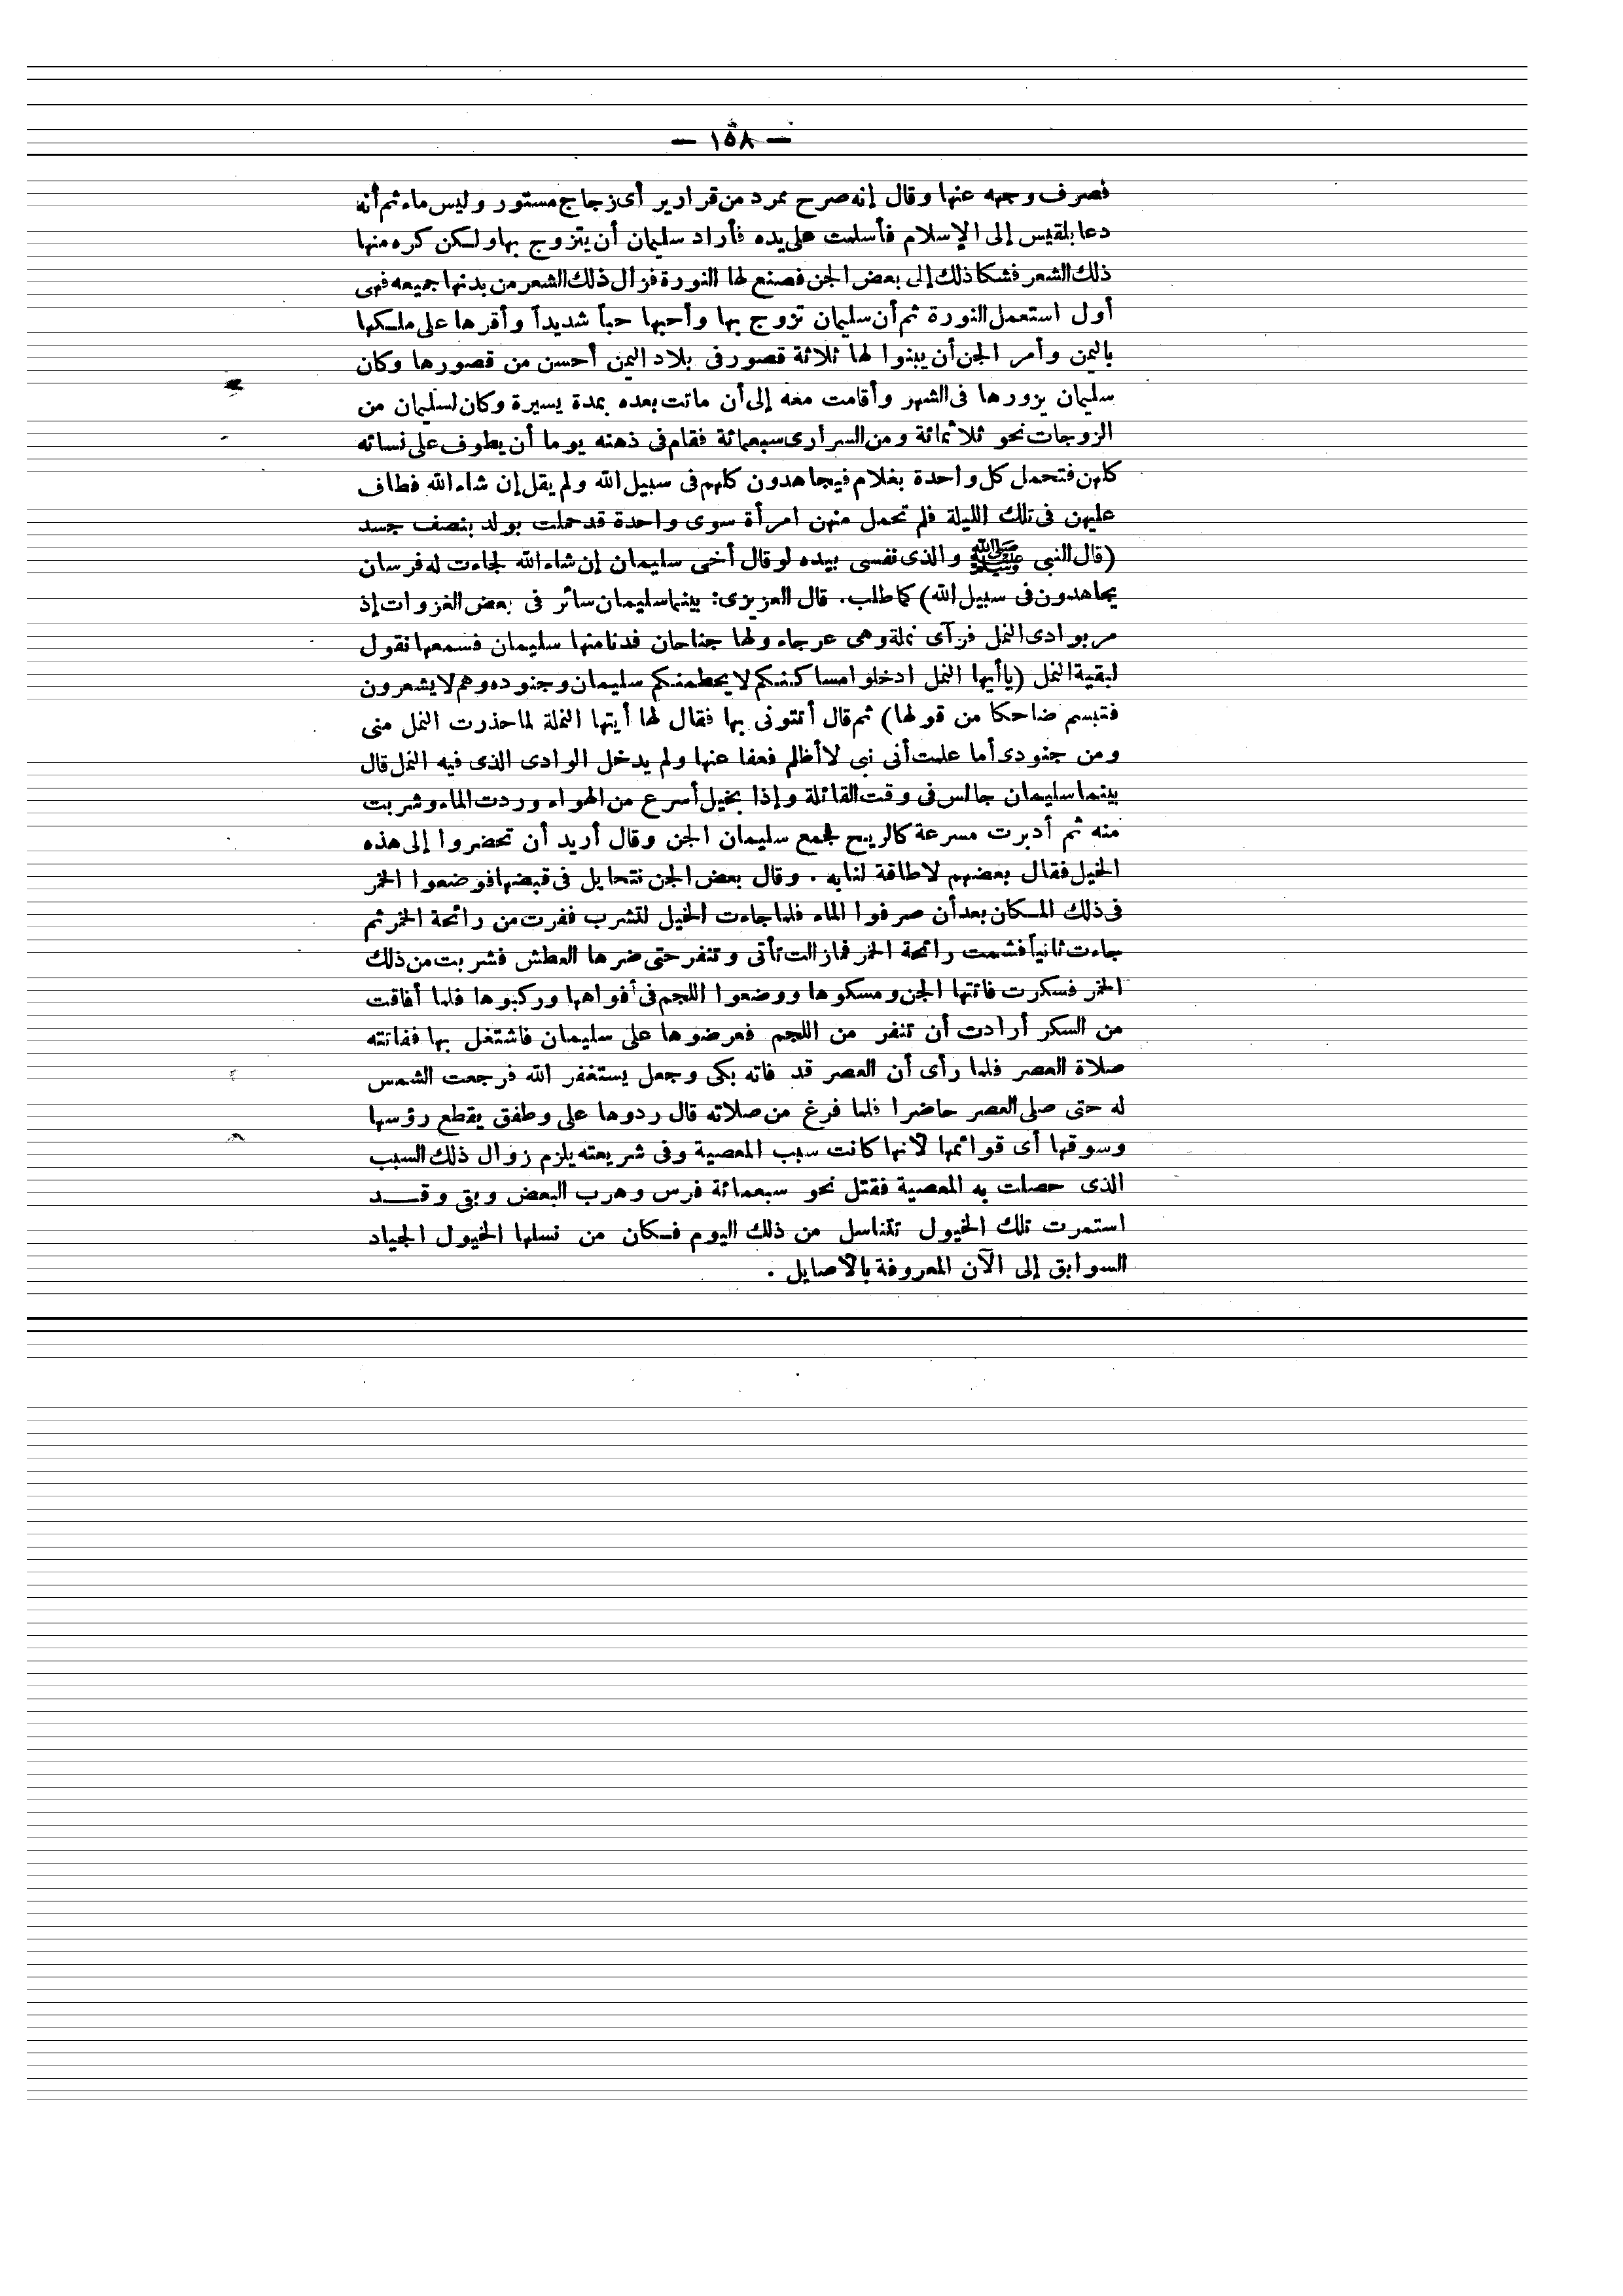 — ١٥٨ —
فصرف وجهه عنها وقال إنه صرح ممرد من قرارير أى زجاج مستور وليس ماء ثم أنه
دعا بلقيس إلى الإسلام فأسلمت على يده فأراد سليمان أن يتزوج بها ولكن كره منها
ذلك الشعر فشكا ذلك إلى بعض الجن فصنع لها النورة فزال ذلك الشعر من بدنها جميعه فهى
أول استعمل النورة ثم أن سليمان تزوج بها وأحبها حباً شديداً وأقرها على ملكها
باليمن وأمر الجن أن يبنوا لها ثلاثة قصور فى بلاد اليمن أحسن من قصورها وكان
سليمان يزورها فى الشهر وأقامت معه إلى أن ماتت بعده بمدة يسيرة وكان لسليمان من
الزوجات نحو ثلاثمائة ومن السرارى سبعمائة فقام فى ذهنه يوما أن يطوف على نسائه
كلهن فتحمل كل واحدة بغلام فيجاهدون كلهم فى سبيل الله ولم يقل إن شاء الله فطاف
عليهن فى تلك الليلة فلم تحمل منهن امرأة سوى واحدة قد حملت بولد بنصف جسد
(قال النبى ﷺ والذى نفسى بيده لو قال أخى سليمان إن شاء الله لجاءت له فرسان
يجاهدون فى سبيل الله) كما طلب. قال العزيزى: بينما سليمان سائر فى بعض الغزوات إذ
مر بوادى النمل فرآى نملة وهى عرجاء ولها جناحان فدنا منها سليمان فسمعها تقول
لبقية النمل (يا أيها النمل ادخلوا مساكنكم لا يحطمنكم سليمان وجنوده وهم لا يشعرون
فتبسم ضاحكا من قولها) ثم قال أئتونى بها فقال لها أيتها النملة لما حذرت النمل منى
ومن جنودى أما علمت أنى نبى لا أظلم فعفا عنها ولم يدخل الوادى الذى فيه النمل قال
بينما سليمان جالس فى وقت القائلة وإذا بخيل أسرع من الهواء وردت الماء وشربت
منه ثم أدبرت مسرعة كالريح فجمع سليمان الجن وقال أريد أن تحضروا إلى هذه
الخيل فقال بعضهم لا طاقة لنا به . وقال بعض الجن نتحايل فى قبضها فوضعوا الخمر
فى ذلك المكان بعد أن صرفوا الماء فلما جاءت الخيل لتشرب ففرت من رائحة الخمر ثم
جاءت ثانياً فشمت رائحة الخمر فما زالت تأتى وتنفر حتى ضرها العطش فشربت من ذلك
الخمر فسكرت فاتتها الجن ومسكوها ووضعوا اللجم فى أفواهها وركبوها فلما أفاقت
من السكر أرادت أن تنفر من اللجم فعرضوها على سليمان فاشتغل بها ففاتته
صلاة العصر فلما رأى أن العصر قد فاته بكى وجعل يستغفر الله فرجعت الشمس
له حتى صلى العصر حاضرا فلما فرغ من صلاته قال ردوها على وطفق يقطع رؤسها
وسوقها أى قوائمها لانها كانت سبب المعصية وفى شريعته يلزم زوال ذلك السبب
الذى حصلت به المعصية فقتل نحو سبعمائة فرس وهرب البعض وبقى وقد
استمرت تلك الخيول تتناسل من ذلك اليوم فكان من نسلها الخيول الجياد
السوابق إلى الآن المعروفة بالاصايل .